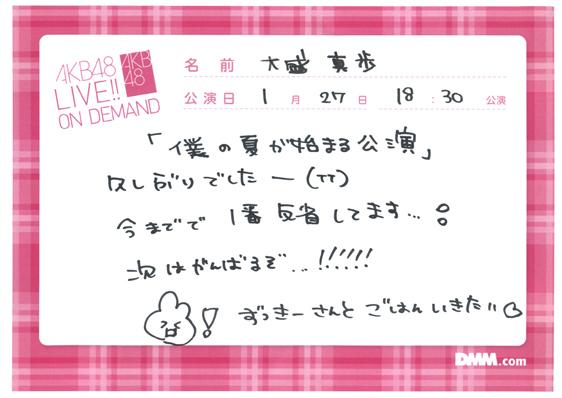 AKB48
LIVE!!
ON DEMAND
AKB
48
名前 大盛真歩
公演日 1月27日 18:30公演
「僕の夏が始まる公演」
久しぶりでしたー(TT)
今までで 1番 反省してます...
次はがんばるぞ...!!!!!!
! ずっきーさんと ごはんいきたい
DMM.com